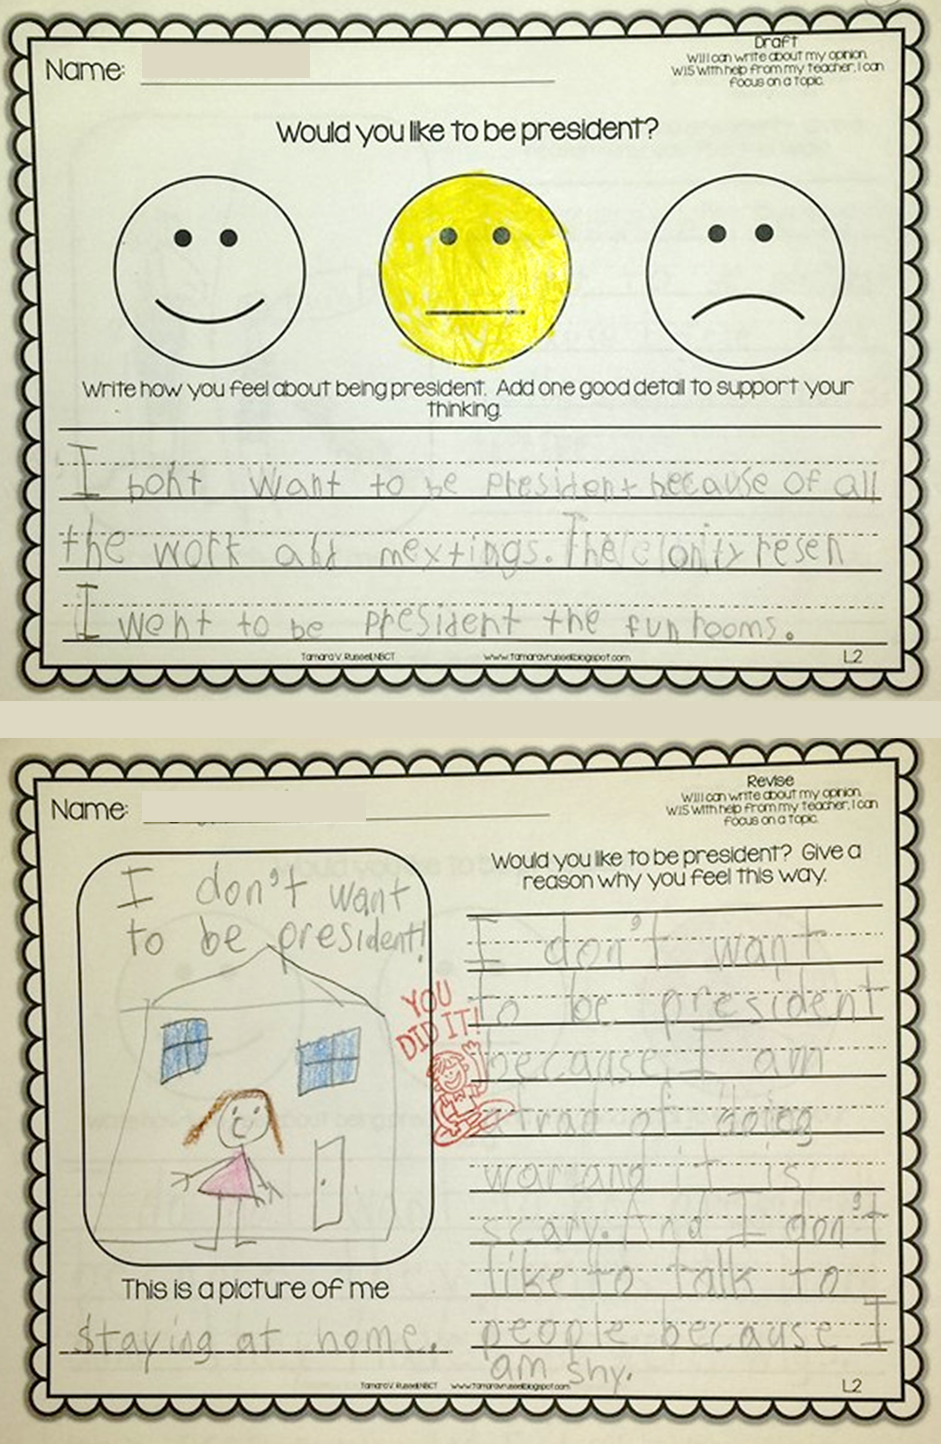 Draft
W1.1 I can write about my opinion.
W1.5 With help from my teacher, I can
focus on a topic.
Name:
Would you like to be president?
Write how you feel about being president. Add one good detail to support your
thinking.
I bont want to be president because of all
the work and mextings. The onity resen
I went to be president the fun rooms.
Tamara V. Russell, NBCT www.tamaravrussell.blogspot.com L.2
Revise
W1.1 I can write about my opinion.
W1.5 With help from my teacher, I can
focus on a topic.
Name:
I don't want
to be president!
YOU
DID IT!
This is a picture of me
Staying at home.
Would you like to be president? Give a
reason why you feel this way.
I don't want
to be president
because I am
afrad of doing
war and it is
scary. And I don't
like to talk to
people because I
am shy.
Tamara V. Russell, NBCT www.tamaravrussell.blogspot.com L.2